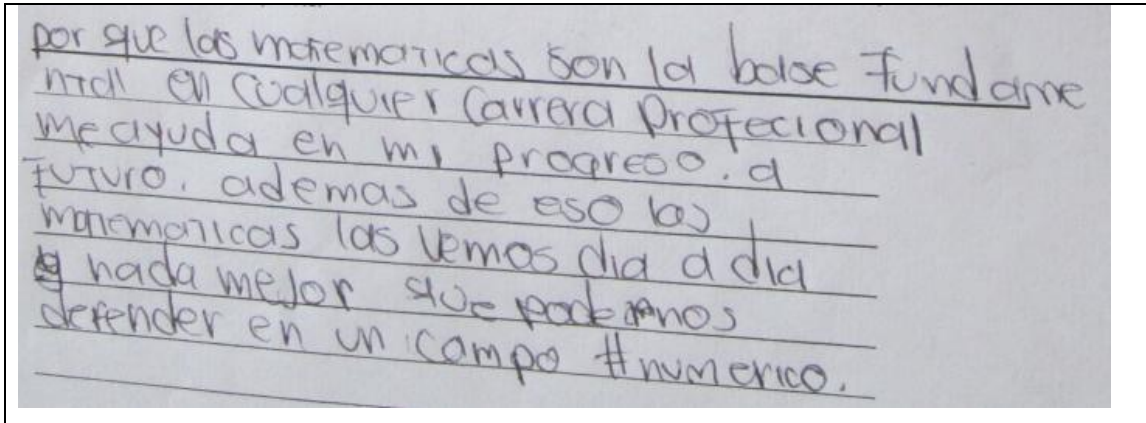 por que las matematicas son la base fundame
ntal en cualquier carrera profecional
me ayuda en mi progreso. a
futuro. ademas de eso las
matematicas las vemos dia a dia
y nada mejor que podernos
defender en un campo #numerico.